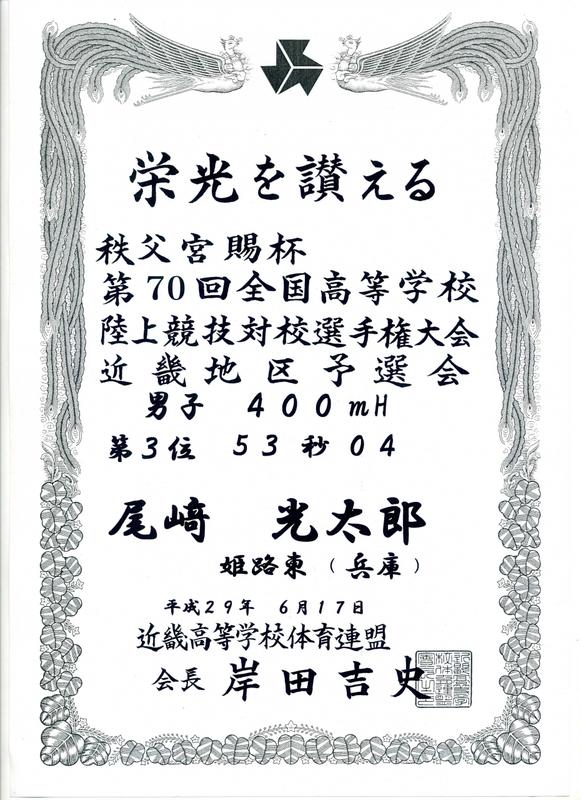 栄光を讃える
秩父宮賜杯
第70回全国高等学校
陸上競技対校選手権大会
近畿地区予選会
男子 400mH
第3位 53秒04
尾﨑 光太郎
姫路東（兵庫）
平成29年 6月17日
近畿高等学校体育連盟
会長 岸田吉史